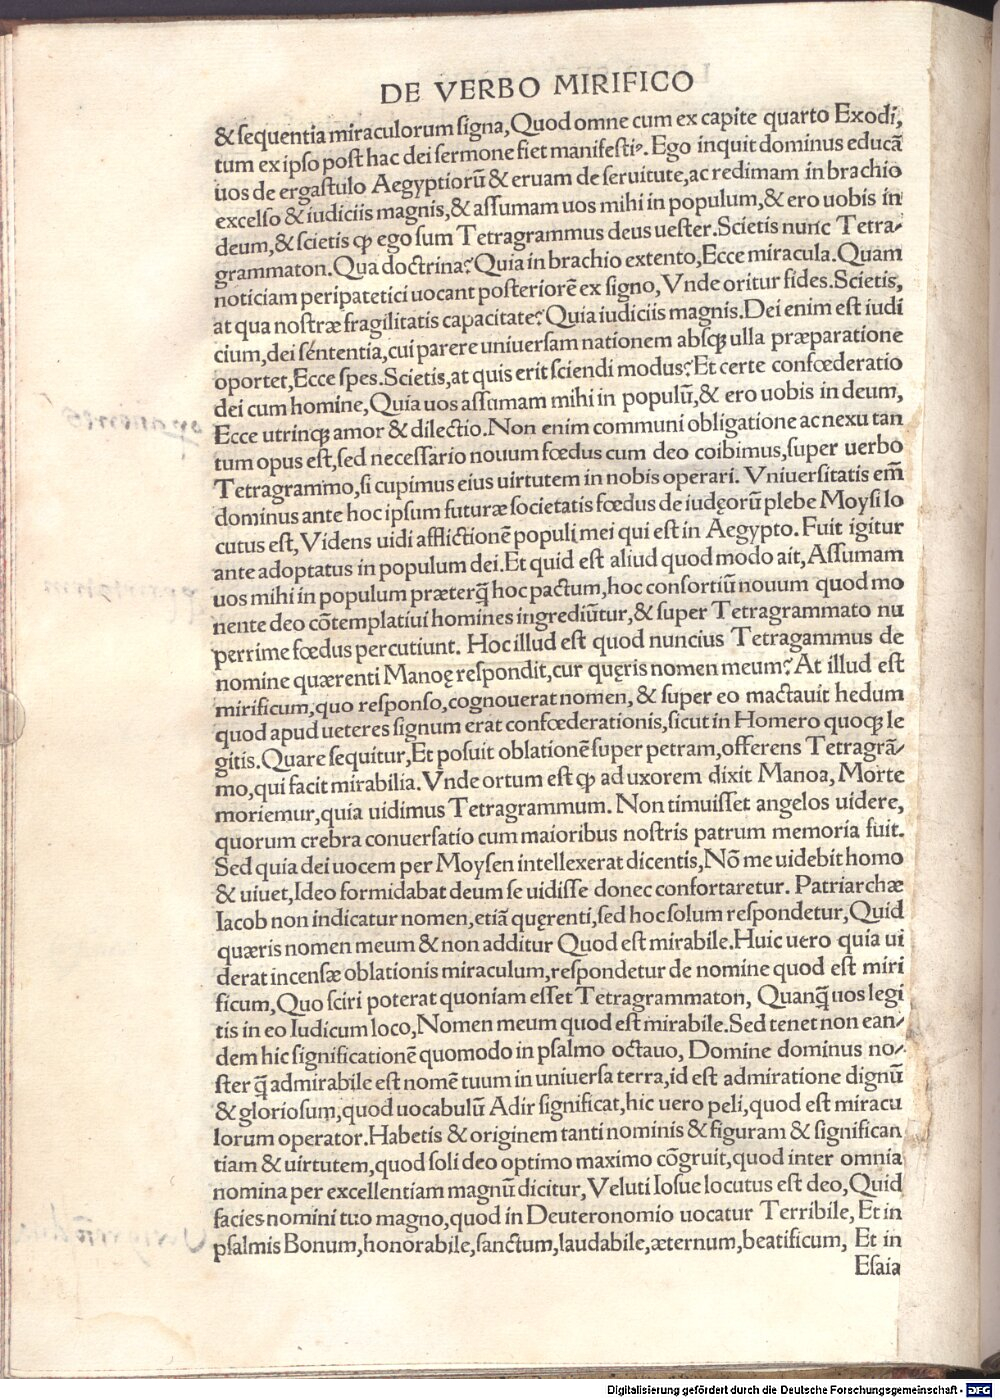 DE VERBO MIRIFICO
& sequentia miraculorum signa, Quod omne cum ex capite quarto Exodi,
tum ex ipso post hac dei sermone fiet manifestiꝰ. Ego inquit dominus educã
uos de ergastulo Aegyptiorũ & eruam de seruitute, ac redimam in brachio
excelso & iudiciis magnis, & assumam uos mihi in populum, & ero uobis in
deum, & scietis ꝙ ego sum Tetragrammus deus uester. Scietis nunc Tetra-
grammaton. Qua doctrina? Quia in brachio extento, Ecce miracula. Quam
noticiam peripatetici uocant posteriorẽ ex signo, Vnde oritur fides. Scietis,
at qua nostræ fragilitatis capacitate? Quia iudiciis magnis. Dei enim est iudi
cium, dei sententia, cui parere uniuersam nationem absqꝫ ulla præparatione
oportet, Ecce spes. Scietis, at quis erit sciendi modus? Et certe confœderatio
dei cum homine, Quia uos assumam mihi in populũ, & ero uobis in deum,
Ecce utrinqꝫ amor & dilectio. Non enim communi obligatione ac nexu tan
tum opus est, sed necessario nouum fœdus cum deo coibimus, super uerbo
Tetragrammo, si cupimus eius uirtutem in nobis operari. Vniuersitatis em̃
dominus ante hoc ipsum futuræ societatis fœdus de iudęorũ plebe Moysi lo
cutus est, Videns uidi afflictionẽ populi mei qui est in Aegypto. Fuit igitur
ante adoptatus in populum dei. Et quid est aliud quod modo ait, Assumam
uos mihi in populum præterq̃ hoc pactum, hoc consortiũ nouum quod mo
nente deo cõtemplatiui homines ingrediũtur, & super Tetragrammato nu
perrime fœdus percutiunt. Hoc illud est quod nuncius Tetragammus de
nomine quærenti Manoę respondit, cur quęris nomen meum? At illud est
mirificum, quo responso, cognouerat nomen, & super eo mactauit hedum
quod apud ueteres signum erat confœderationis, sicut in Homero quoqꝫ le
gitis. Quare sequitur, Et posuit oblationẽ super petram, offerens Tetragrã-
mo, qui facit mirabilia. Vnde ortum est ꝙ ad uxorem dixit Manoa, Morte
moriemur, quia uidimus Tetragrammum. Non timuisset angelos uidere,
quorum crebra conuersatio cum maioribus nostris patrum memoria fuit.
Sed quia dei uocem per Moysen intellexerat dicentis, Nõ me uidebit homo
& uiuet, Ideo formidabat deum se uidisse donec confortaretur. Patriarchæ
Iacob non indicatur nomen, etiã quęrenti, sed hoc solum respondetur, Quid
quæris nomen meum & non additur Quod est mirabile. Huic uero quia ui
derat incensæ oblationis miraculum, respondetur de nomine quod est miri
ficum, Quo sciri poterat quoniam esset Tetragrammaton, Quanq̃ uos legi
tis in eo Iudicum loco, Nomen meum quod est mirabile. Sed tenet non ean-
dem hic significationẽ quomodo in psalmo octauo, Domine dominus no-
ster q̃ admirabile est nomẽ tuum in uniuersa terra, id est admiratione dignũ
& gloriosum, quod uocabulũ Adir significat, hic uero peli, quod est miracu
lorum operator. Habetis & originem tanti nominis & figuram & significan
tiam & uirtutem, quod soli deo optimo maximo cõgruit, quod inter omnia
nomina per excellentiam magnũ dicitur, Veluti Iosue locutus est deo, Quid
facies nomini tuo magno, quod in Deuteronomio uocatur Terribile, Et in
psalmis Bonum, honorabile, sanctum, laudabile, æternum, beatificum, Et in
Esaia
Digitalisierung gefördert durch die Deutsche Forschungsgemeinschaft - DFG